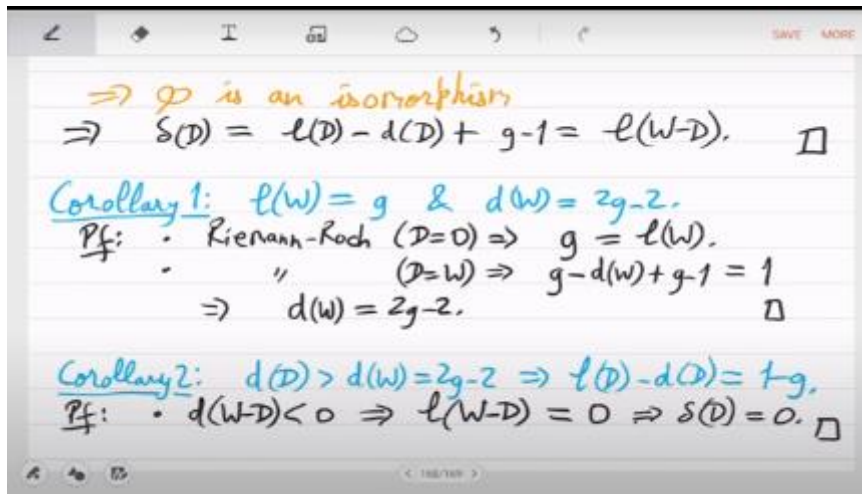 SAVE MORE
⇒ φ is an isomorphism
⇒ δ(D) = ℓ(D) - d(D) + g-1 = ℓ(W-D). □
Corollary 1: ℓ(W) = g & d(W) = 2g-2.
Pf: · Riemann-Roch (D=0) ⇒ g = ℓ(W).
· " (D=W) ⇒ g-d(W)+g-1 = 1
⇒ d(W) = 2g-2. □
Corollary 2: d(D) > d(W) = 2g-2 ⇒ ℓ(D)-d(D) = 1-g.
Pf: · d(W-D) < 0 ⇒ ℓ(W-D) = 0 ⇒ δ(D) = 0. □